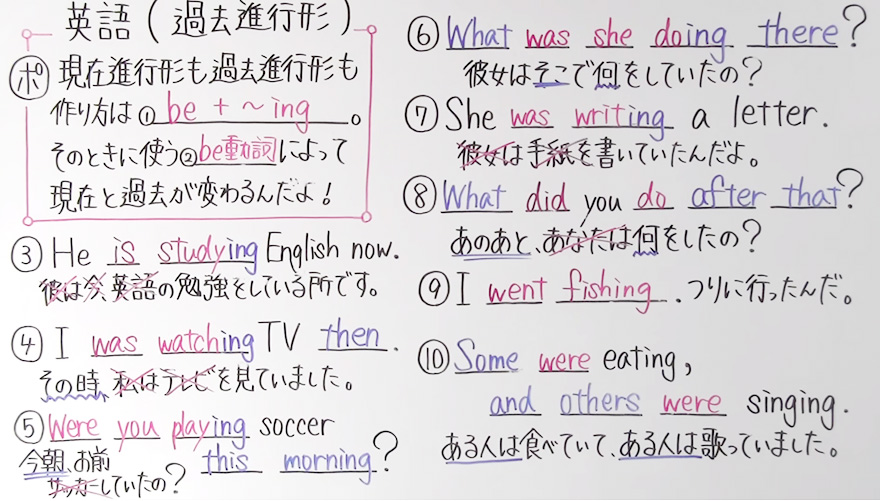 英語(過去進行形)
ポ 現在進行形も過去進行形も
作り方は① be + ～ing 。
そのときに使う② be動詞 によって
現在と過去が変わるんだよ!
③ He is studying English now.
彼は今、英語の勉強をしている所です。
④ I was watching TV then.
その時、私はテレビを見ていました。
⑤ Were you playing soccer
this morning?
今朝、お前
サッカーしていたの?
⑥ What was she doing there?
彼女はそこで何をしていたの?
⑦ She was writing a letter.
彼女は手紙を書いていたんだよ。
⑧ What did you do after that?
あのあと、あなたは何をしたの?
⑨ I went fishing. つりに行ったんだ。
⑩ Some were eating,
and others were singing.
ある人は食べていて、ある人は歌っていました。